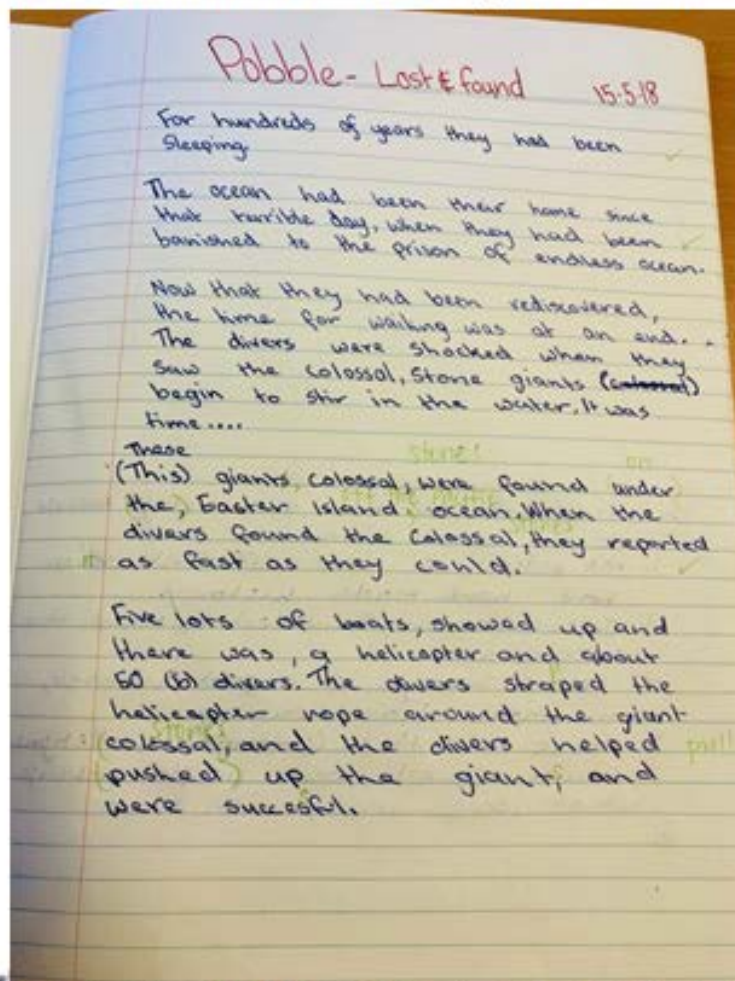 Pobble - Lost & found 15.5.18
For hundreds of years they had been
Sleeping.
The ocean had been their home since
that terrible day, when they had been
banished to the prison of endless ocean.
Now that they had been rediscovered,
the time for waiting was at an end..
The divers were shocked when they
saw the colossal, stone giants (colossal)
begin to stir in the water. It was
time....
These
(This) giants, colossal, were found under
the, Easter island ocean. When the
divers found the colossal, they reported
as fast as they could.
Five lots of boats, showed up and
there was, a helicopter and about
50 divers. The divers straped the
helicopter rope around the giant
colossal, and the divers helped
pushed up the giant, and
were succesful.